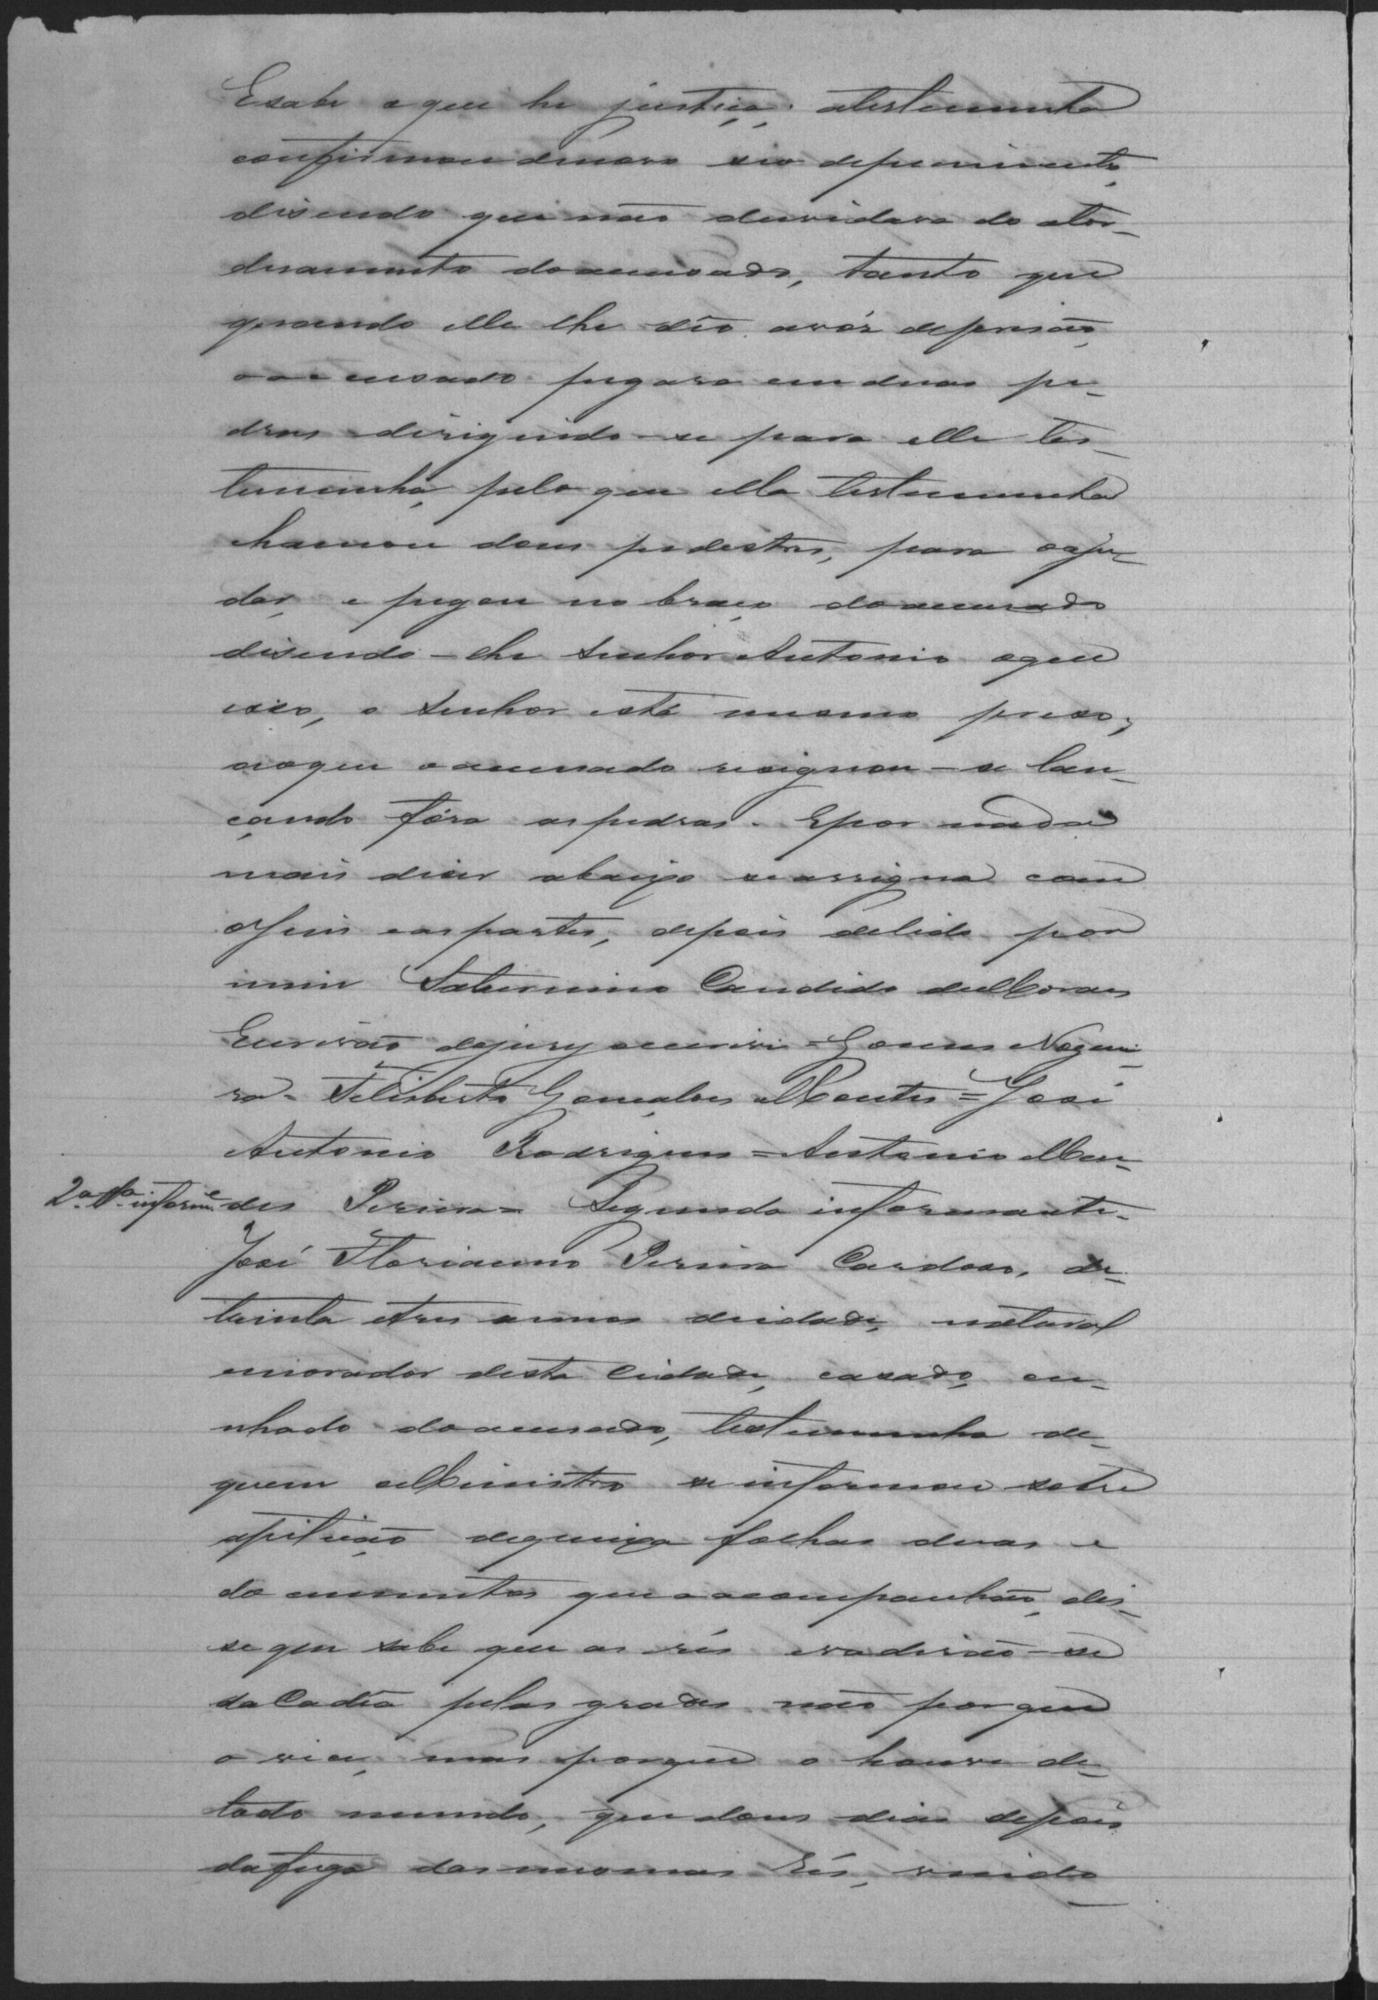 E sabe o que he justiça. A testemunha
confirmou de novo seo depoimento,
disendo que não duvidava do ator-
duamento do accusado, tanto que
quando elle lhe dêo a vóz de prisão,
o accusado pegara em duas pe-
dras dirigindo-se para elle tes-
temunha, pelo que ella testemunha
chamou dous pedestres, para o aju-
dar, e pegou no braço do accusado
disendo-lhe Senhor Antonio o que é
isso, o Senhor está mesmo preso;
ao que o accusado resignou-se lan-
çando fóra as pedras. E por nada
mais diser abaixo se assigna com
o Juis e as partes, depois de lido por
mim Saturnino Candido de Moraes
Escrivão do jury o escrivi = Gomes Nogue-
ra = Felisberto Gonçalves Montes = José
Antonio Rodrigues = Antonio Men-
2ª tª informe des Pereira = Segunda informante.
José Florianno Pereira Cardoso, de
trinta e tres annos de idade, natural
e morador desta Cidade, casado, cu-
nhado do accusado, testemunha de
quem o Ministro se informou sobre
a petição de queixa folhas duas e
documentos que o acompanhão, dis-
se que sabe que as rés evadirão-se
da Cadêa pelas grades não porque
o vio, mas porque o houve de
todo mundo, que dous dias depois
da fuga das mesmas Rés, vindo